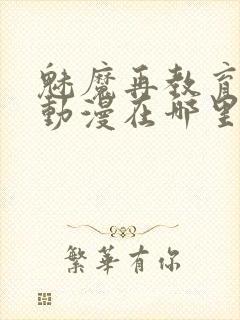 魅魔再教育
動漫在哪里
繁華有你